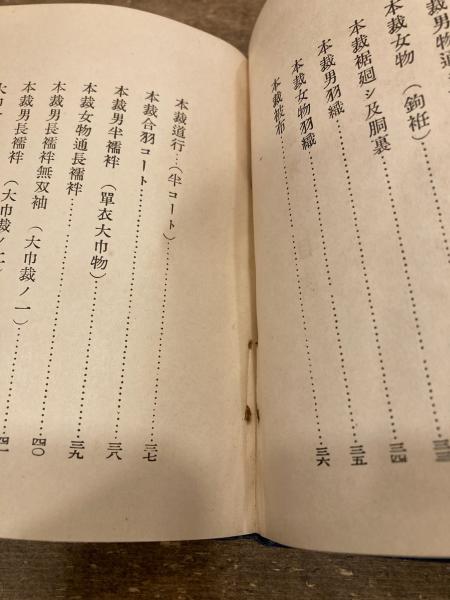 裁男物通
本裁女物（鉤衽）
本裁裾廻シ及胴裏……三三
本裁男羽織……三四
本裁女物羽織……三五
本裁被布……三六
本裁道行…（半コート）……三七
本裁合羽コート……三八
本裁男半襦袢（單衣大巾物）……三九
本裁女物通長襦袢……四〇
本裁男長襦袢無双袖（大巾裁ノ一）……四一
本裁男長襦袢（大巾裁ノ二